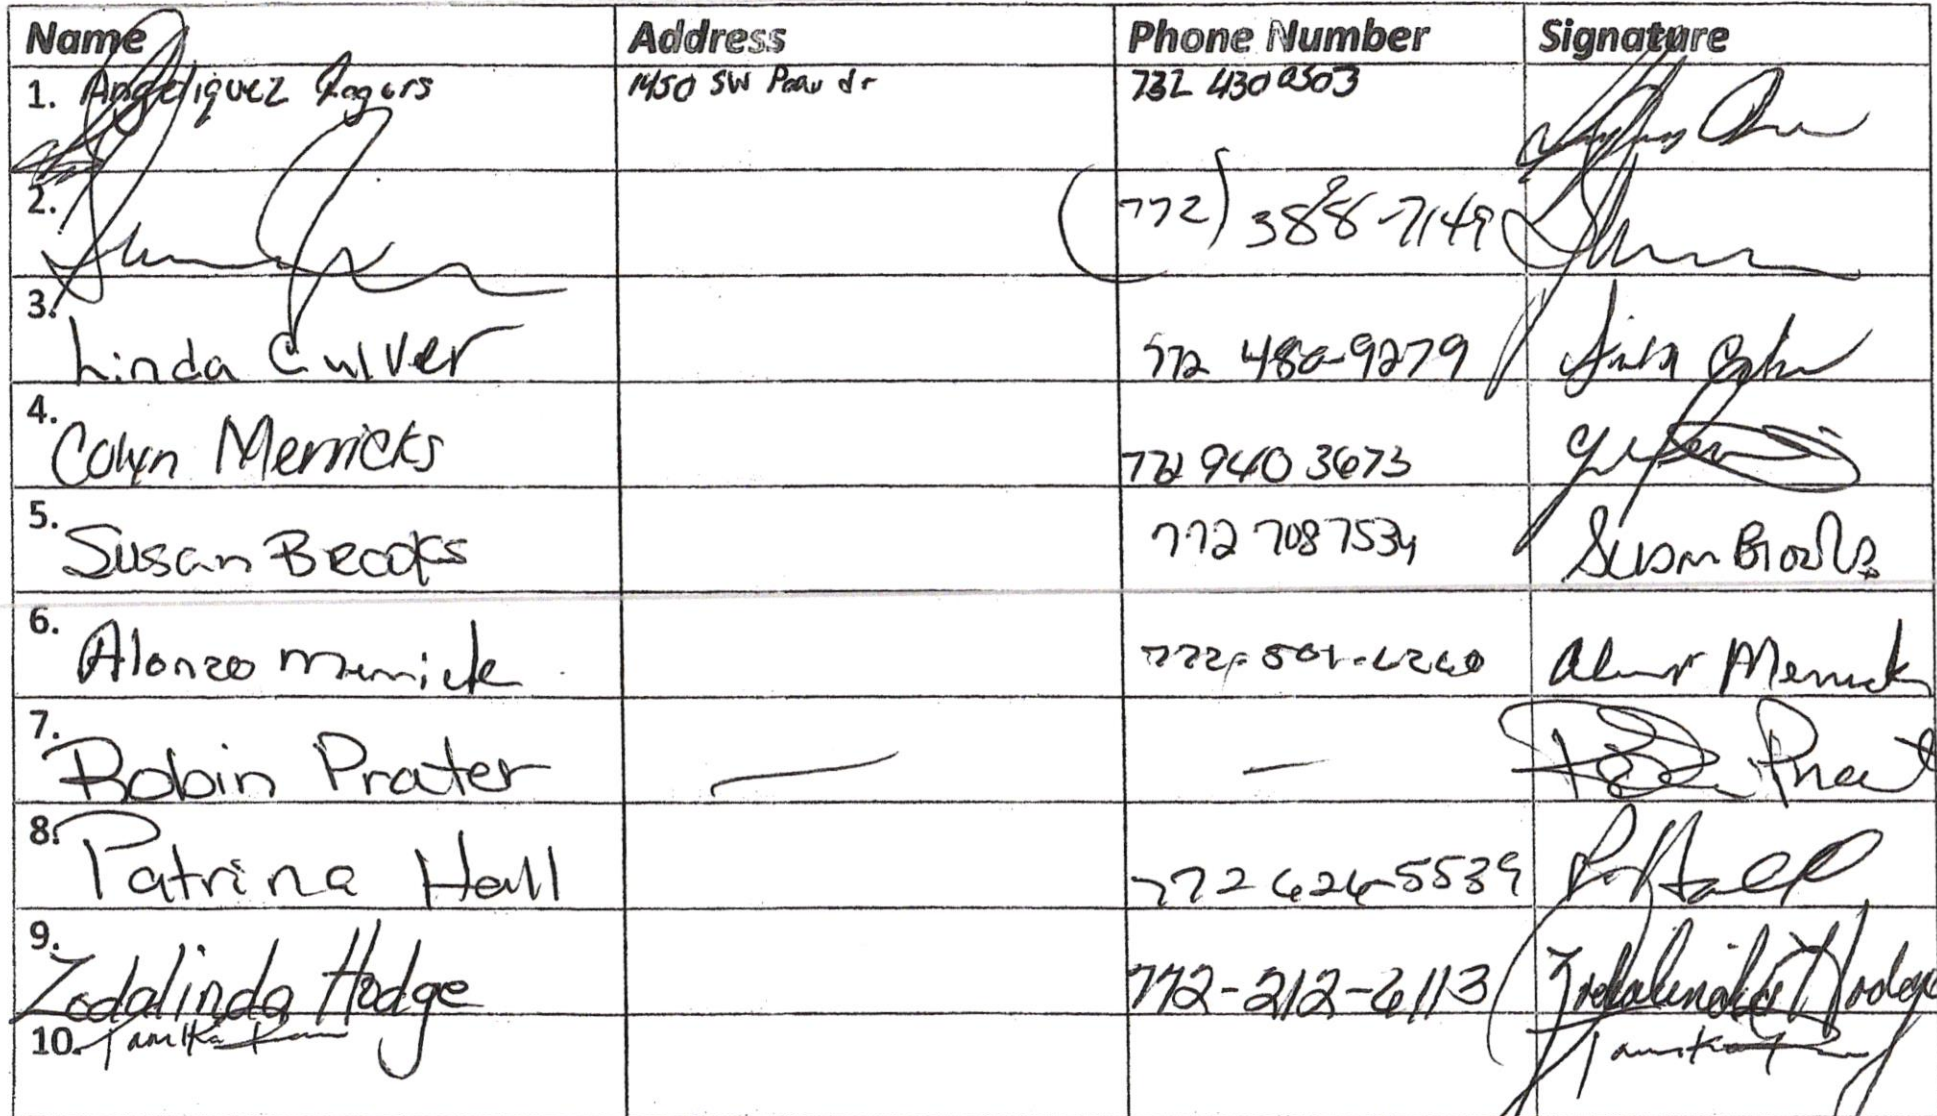 Name Address Phone Number Signature
1. Angeliquez Rogers 1450 SW dr 772 430 0503
2. (772) 388-7149
3. Linda Culver 772 480-9279 Linda Culver
4. Colyn Merricks 772 940 3673
5. Susan Brooks 772 708 7534 Susan Brooks
6. Alonzo Merrick 772-501-6260 Alonzo Merrick
7. Robin Prater — — Robin Prater
8. Patrina Hall 772 626-5539 P Hall
9. Zodalinda Hodge 772-212-6113 Zodalinda Hodge
10. Tamika Tamika